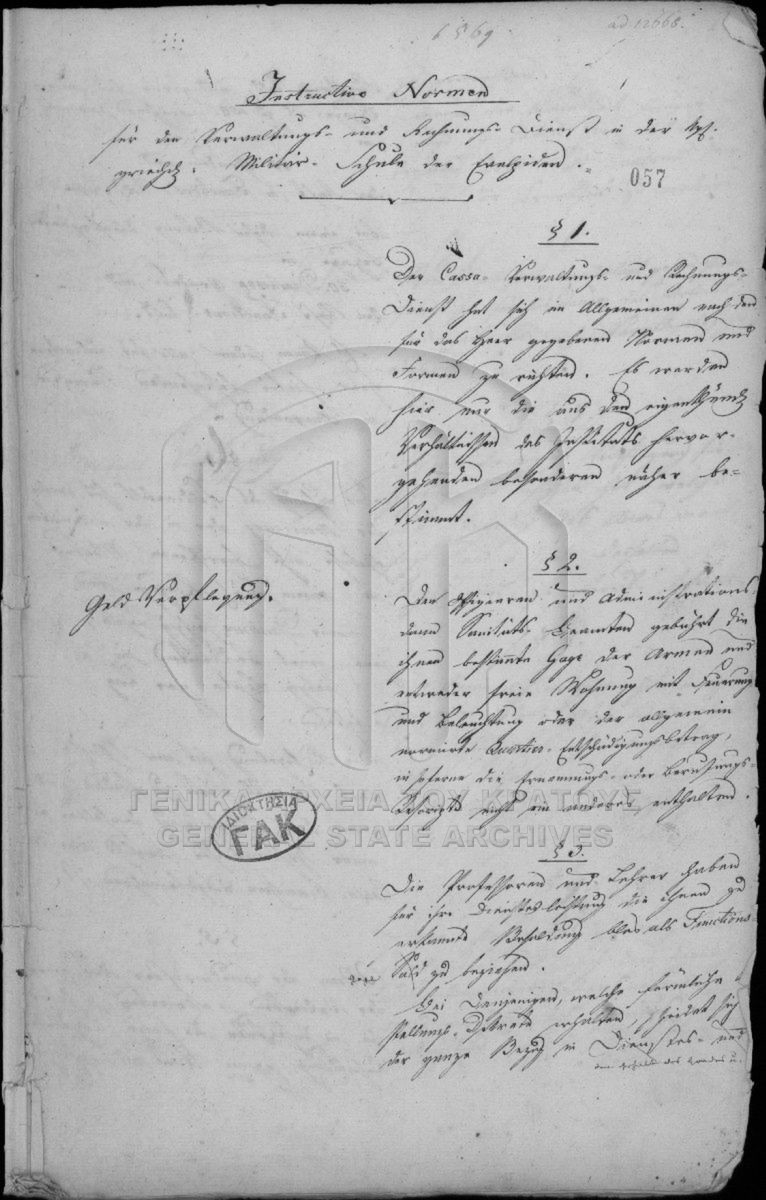 6569
ad 12668.
Instructive Normen
für den Verwaltungs- und Rechnungs-Dienst in der kgl.
griech. Militär-Schule der Evelpiden.
057
§ 1.
Der Cassa-Verwaltungs- und Rechnungs-
Dienst hat sich im Allgemeinen nach den
für das Heer gegebenen Normen und
Formen zu richten. Es werden
hier nur die aus den eigenthüml.
Verhältnissen des Instituts hervor-
gehenden besonderen näher be-
stimmt.
§ 2.
Geld Verpflegung.
Den Offizieren und Administrations,
dann Sanitäts-Beamten gebührt die
ihnen bestimmte Gage der Armee und
entweder freie Wohnung mit Feuerung
und Beleuchtung oder der allgemein
normirte Quartier-Entschädigungsbetrag,
in soferne die Ernennungs- oder Berufungs-
Rescripte nicht ein anderes enthalten.
ΓΕΝΙΚΑ ΑΡΧΕΙΑ ΤΟΥ ΚΡΑΤΟΥΣ
GENERAL STATE ARCHIVES
ΙΔΙΟΚΤΗΣΙΑ
ΓΑΚ
§ 3.
Die Professoren und Lehrer haben
für ihre Dienstesleistung die ihnen zu
erkannte Besoldung blos als Functions-
Sold zu beziehen.
Bei denjenigen, welche förmliche
Stellungs-Dekrete erhalten, scheidet sich
der ganze Bezug in Dienstes- und
den Gehalt des Grades u.